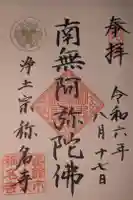 奉拝
令和六年
八月十七日
南無阿弥陀佛
浄土宗称名寺